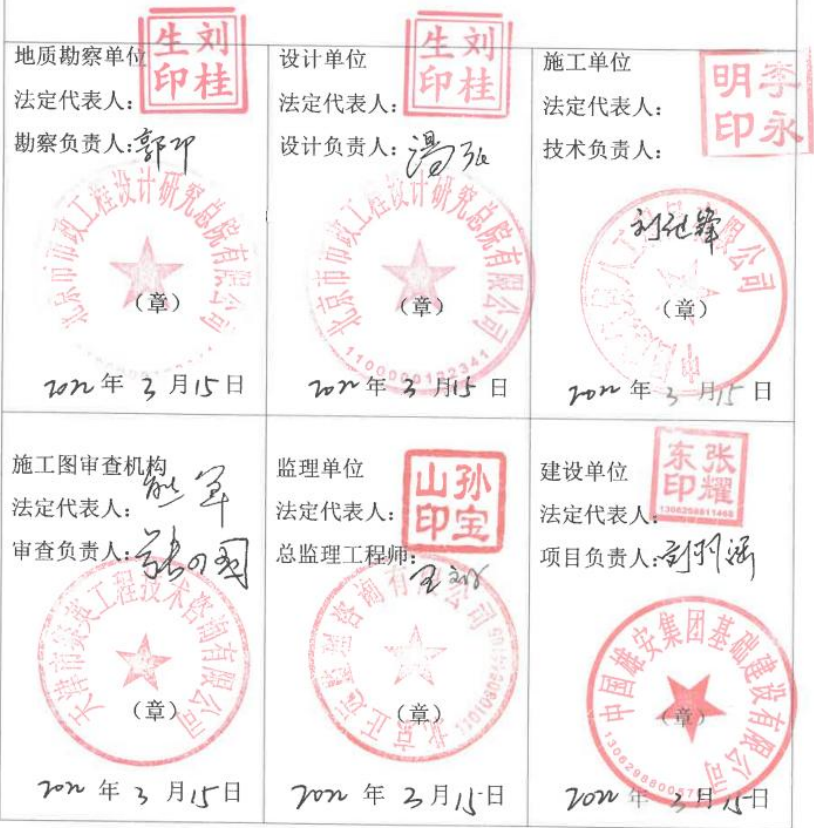 地质勘察单位
刘桂生印
法定代表人：
勘察负责人：郭
北京市市政工程设计研究总院有限公司
（章）
2022年3月15日
设计单位
刘桂生印
法定代表人：
设计负责人：汤
北京市市政工程设计研究总院有限公司
（章）
1100000132341
2022年3月15日
施工单位
李永明印
法定代表人：
技术负责人：
工程局有限公司
（章）
2022年3月15日
施工图审查机构
法定代表人：熊军
审查负责人：张
天津市
工程技术咨询有限公司
（章）
2022年3月15日
监理单位
孙宝山印
法定代表人：
总监理工程师：王
北京正远监理咨询有限公司
（章）
2022年3月15日
建设单位
张耀东印
法定代表人：
项目负责人：刘
中国雄安集团基础建设有限公司
（章）
2022年3月15日